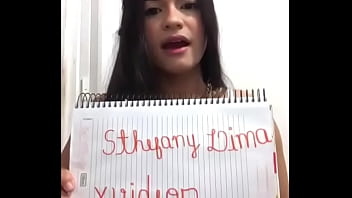 Sthefany Lima
xvideos